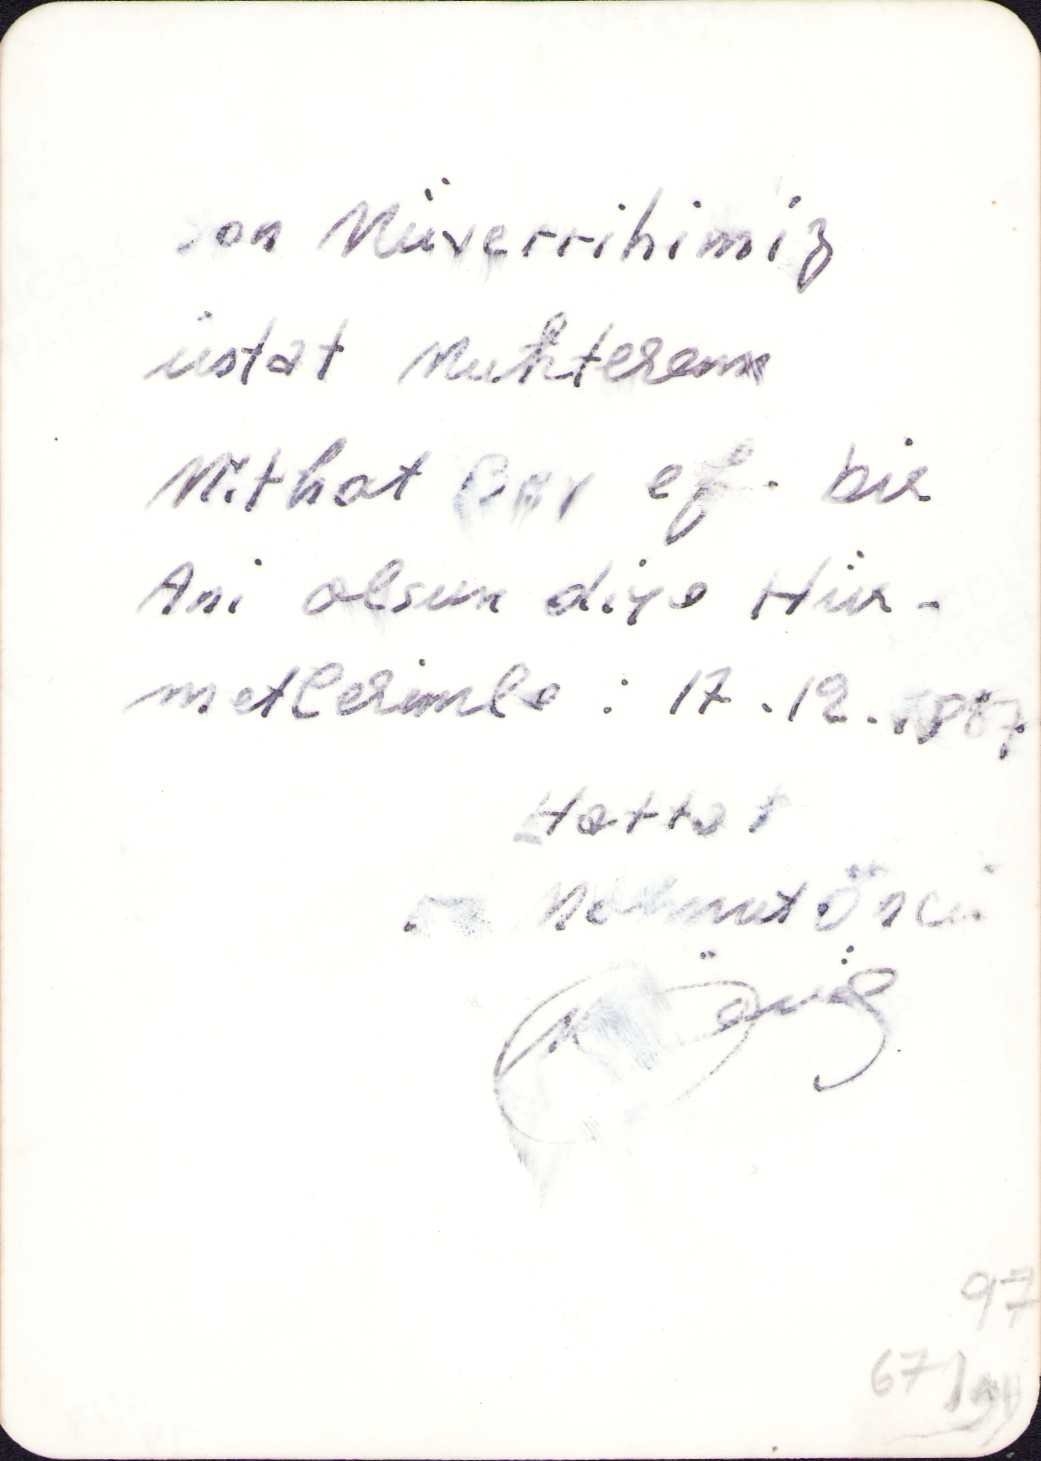 son Müverrihimiz
üstat Muhterem
Mithat Bey ef. bir
Ani olsun diye Hür-
metlerimle : 17.12.1987
Hattat
Mahmut Öncü
97
67